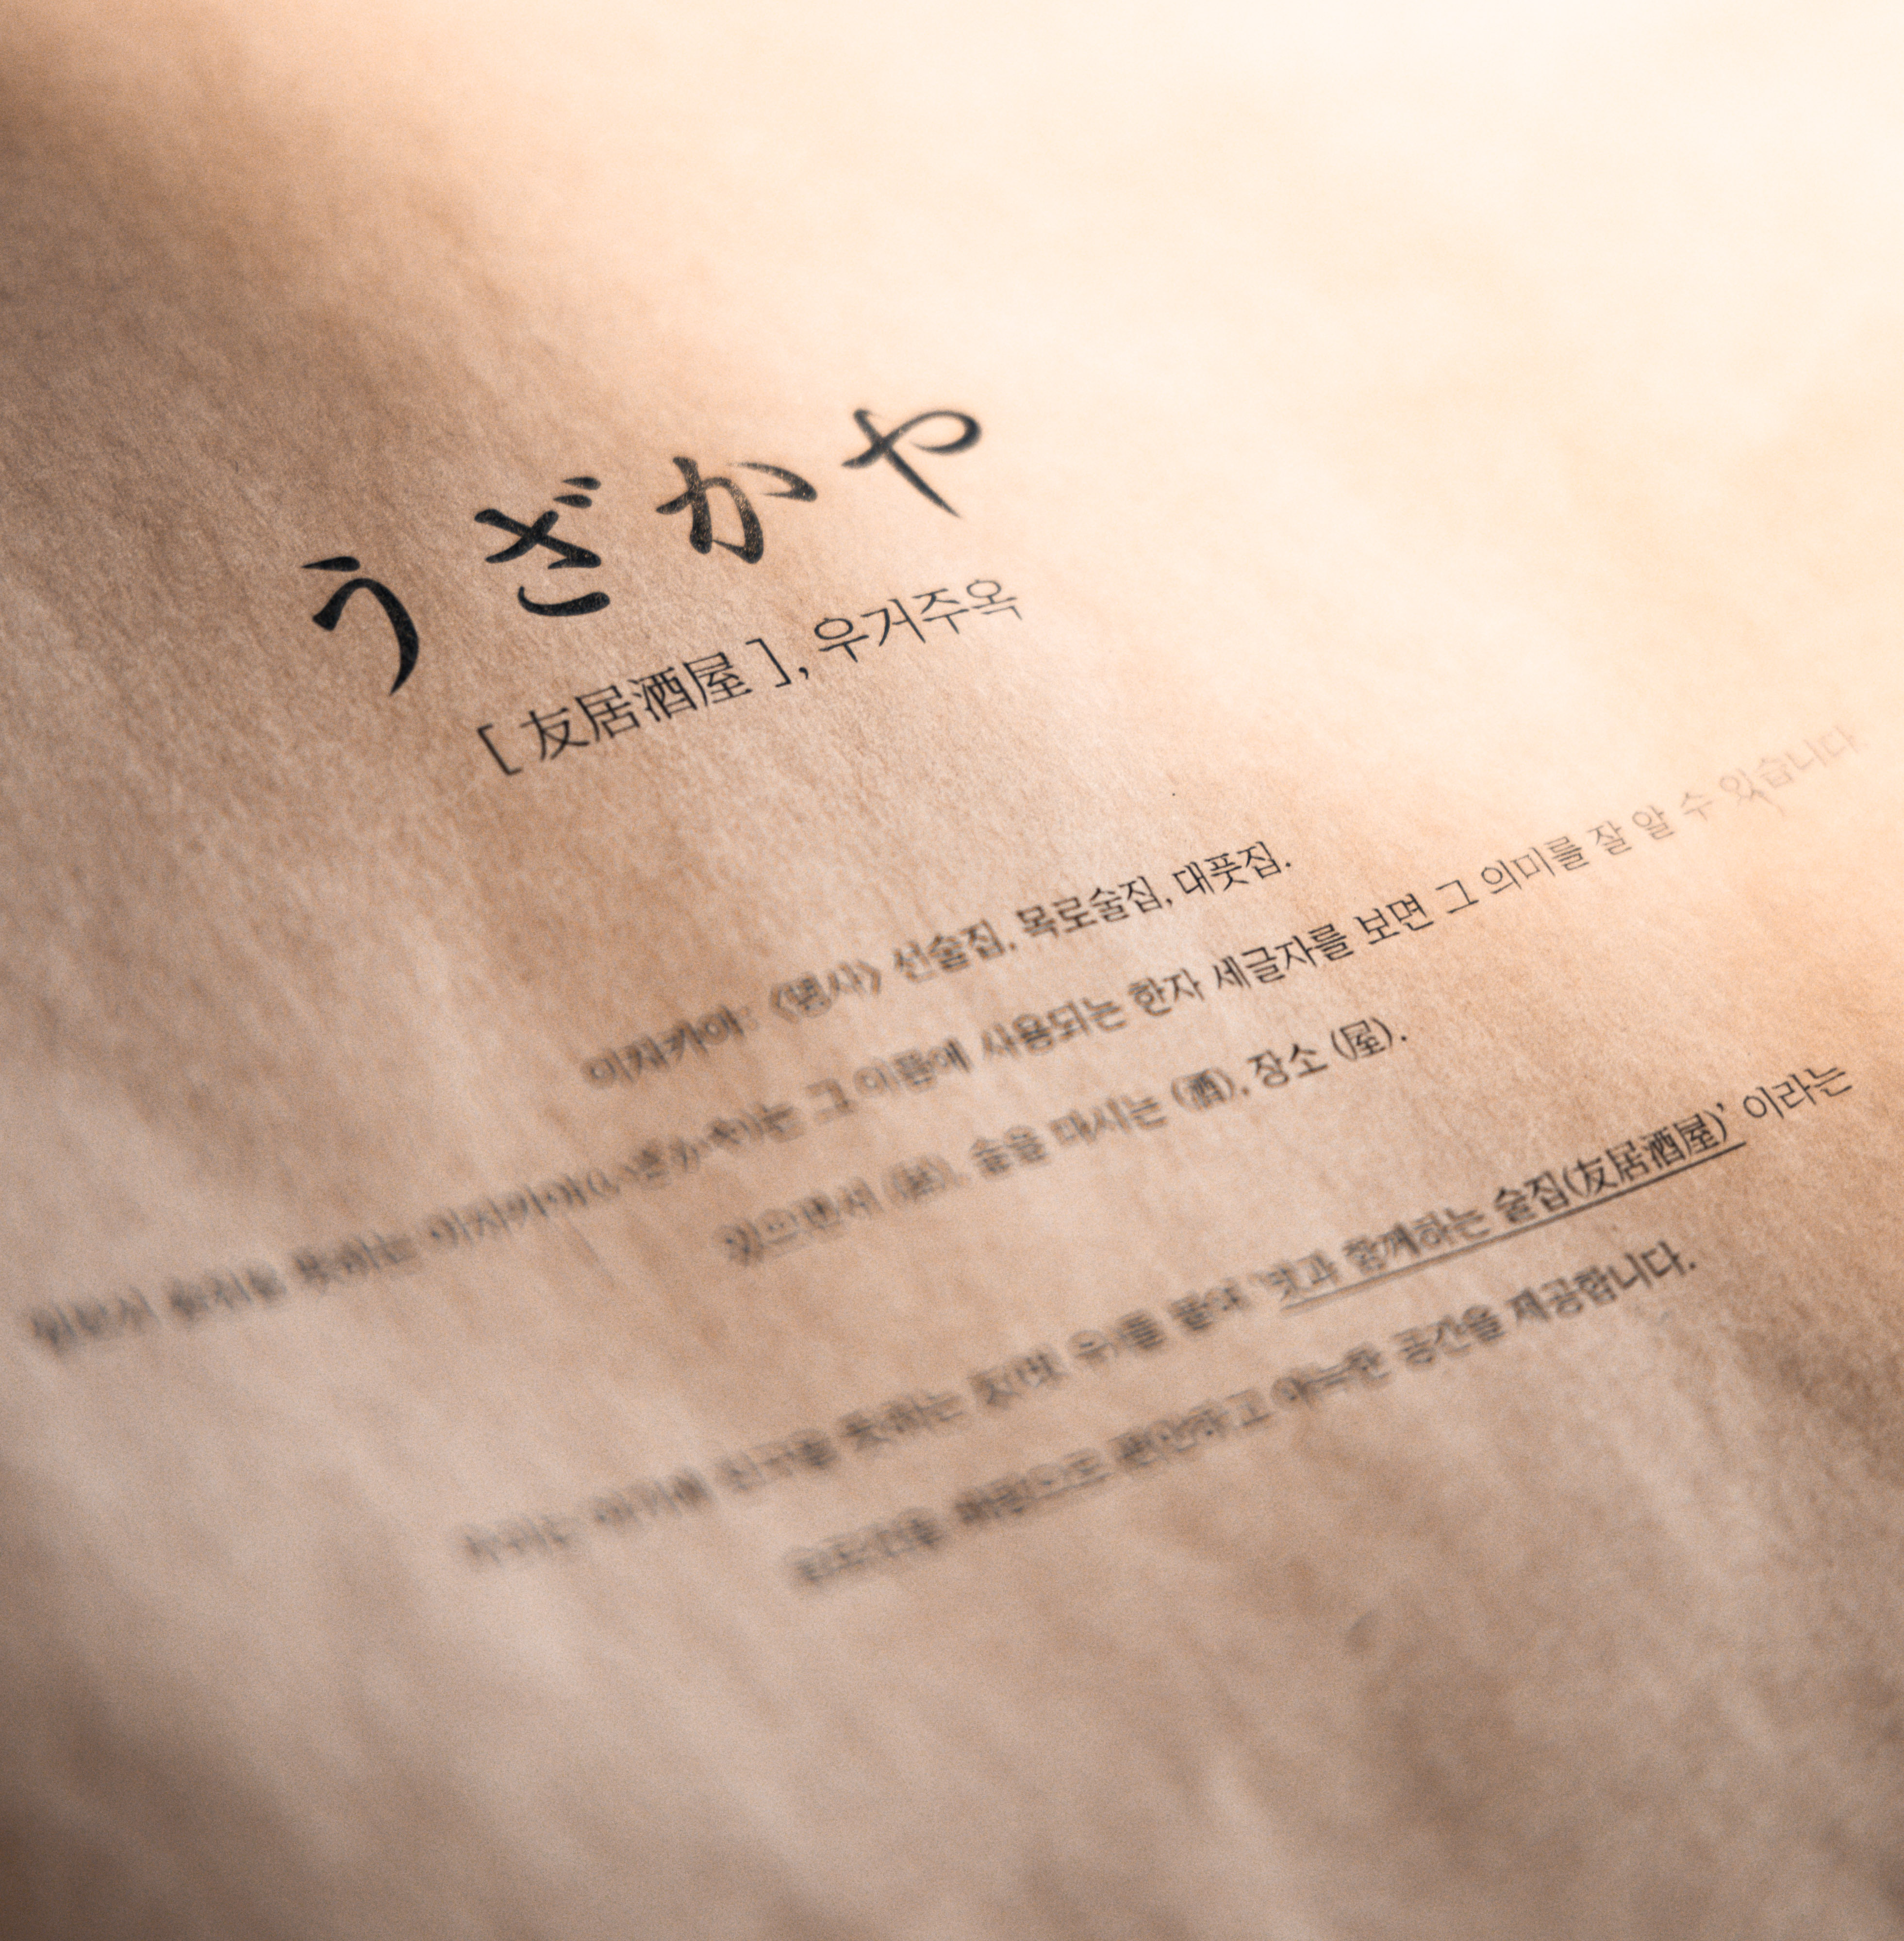 うざかや
[ 友居酒屋 ], 우거주옥
이자카야: 〈명사〉 선술집, 목로술집, 대폿집.
일본서 술집을 뜻하는 이자카야(いざかや)는 그 이름에 사용되는 한자 세글자를 보면 그 의미를 잘 알 수 있습니다.
있으면서 (居), 술을 마시는 (酒), 장소 (屋).
우리는 여기에 친구를 뜻하는 友(벗 우)를 붙여 '벗과 함께하는 술집(友居酒屋)' 이라는
바탕으로 편안하고 아늑한 공간을 제공합니다.